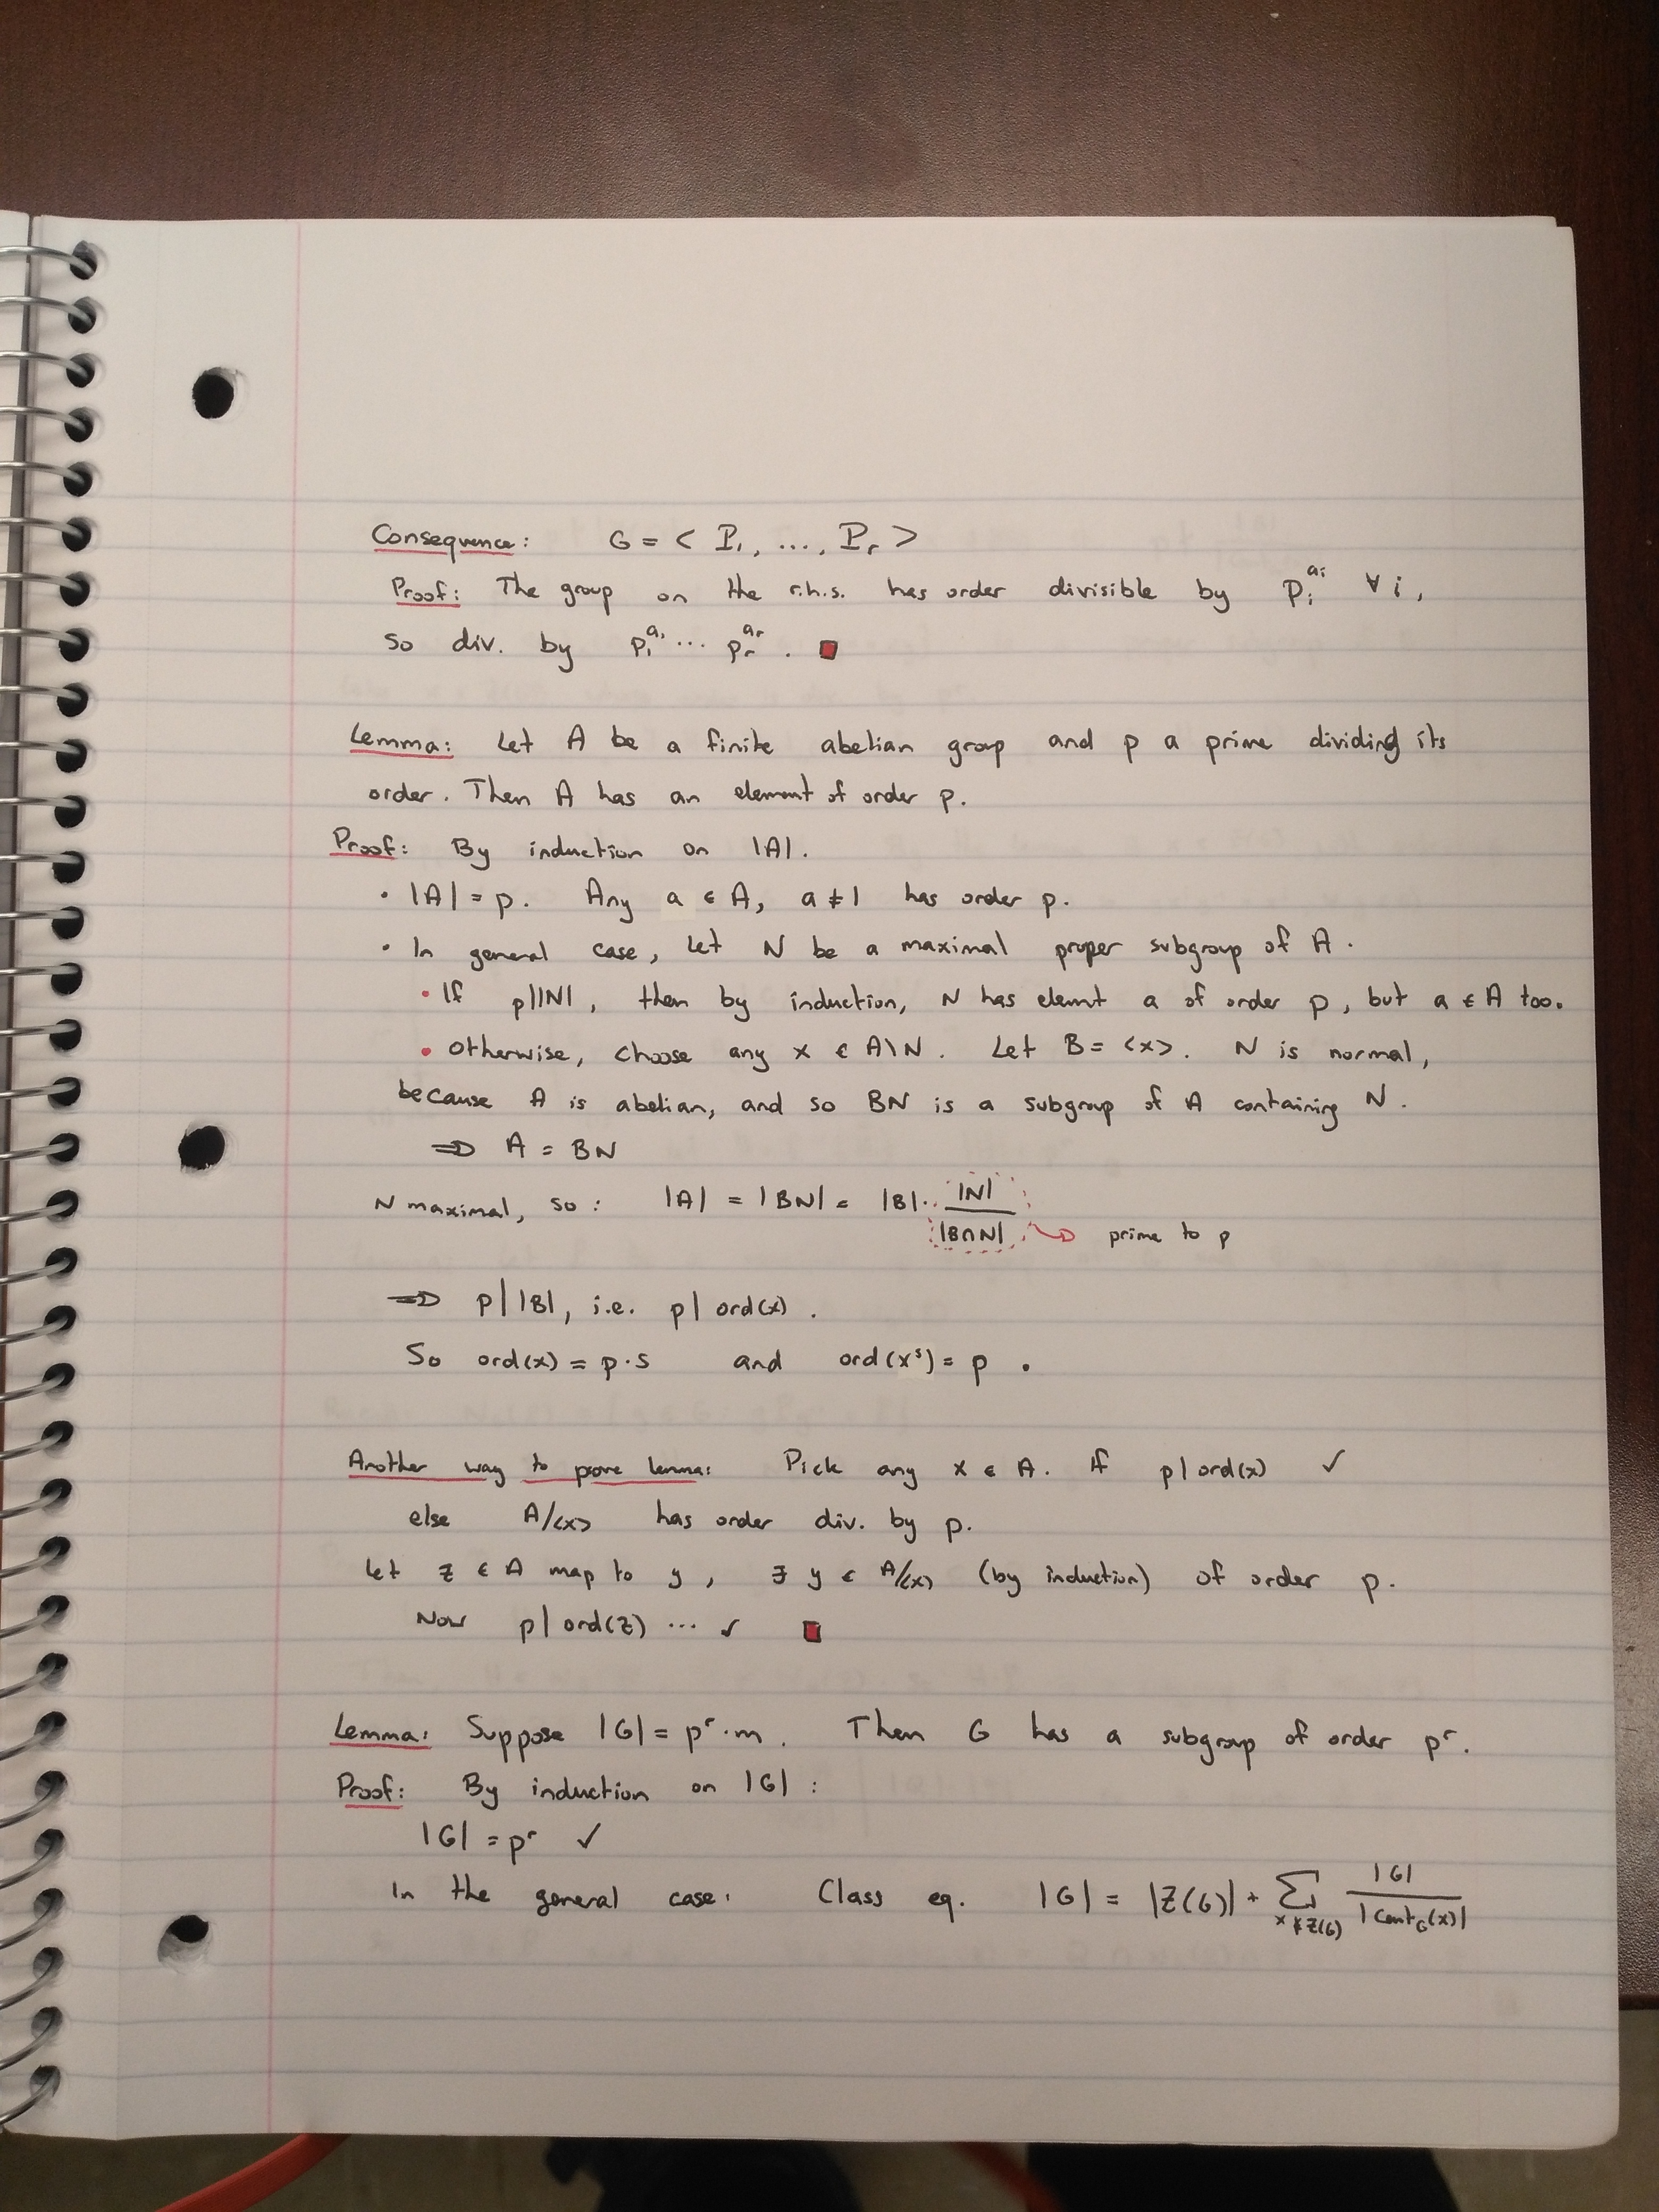 Consequence: G = < P₁, ..., Pᵣ >
Proof: The group on the r.h.s. has order divisible by pᵢ^aᵢ ∀ i,
so div. by p₁^a₁ ... pᵣ^aᵣ . ■
Lemma: Let A be a finite abelian group and p a prime dividing its
order. Then A has an element of order p.
Proof: By induction on |A|.
• |A| = p. Any a ∈ A, a ≠ 1 has order p.
• In general case, let N be a maximal proper subgroup of A.
• If p||N|, then by induction, N has elemnt a of order p, but a ∈ A too.
• Otherwise, choose any x ∈ A\N. Let B = <x>. N is normal,
because A is abelian, and so BN is a subgroup of A containing N.
⇒ A = BN
N maximal, so: |A| = |BN| = |B| · |N| / |B∩N| → prime to p
⇒ p | |B|, i.e. p | ord(x) .
So ord(x) = p·s and ord(xˢ) = p .
Another way to prove lemma: Pick any x ∈ A. If p | ord(x) ✓
else A/<x> has order div. by p.
Let z ∈ A map to y, ∃ y ∈ A/<x> (by induction) of order p.
Now p | ord(z) ... ✓ ■
Lemma: Suppose |G| = pʳ·m. Then G has a subgroup of order pʳ.
Proof: By induction on |G| :
|G| = pʳ ✓
In the general case: Class eq. |G| = |Z(G)| + ∑_{x∉Z(G)} |G| / |Cent_G(x)|